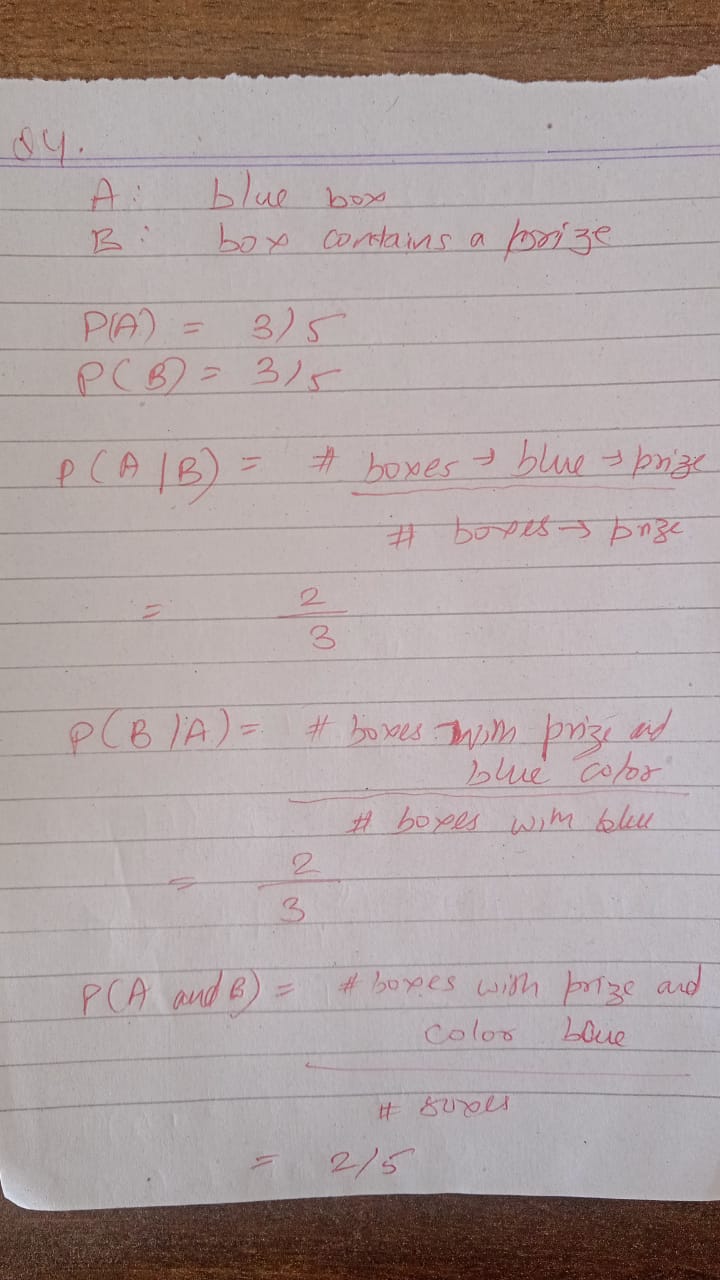 Q4.
A: blue box
B: box contains a prize
P(A) = 3/5
P(B) = 3/5
P(A|B) = # boxes → blue → prize
# boxes → prize
= 2
3
P(B|A) = # boxes with prize and
blue color
# boxes with blue
= 2
3
P(A and B) = # boxes with prize and
color blue
# boxes
= 2/5